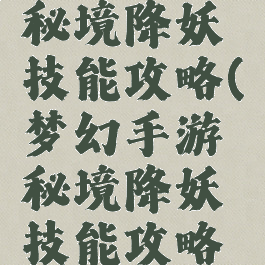 秘境降妖
技能攻略(
梦幻手游
秘境降妖
技能攻略